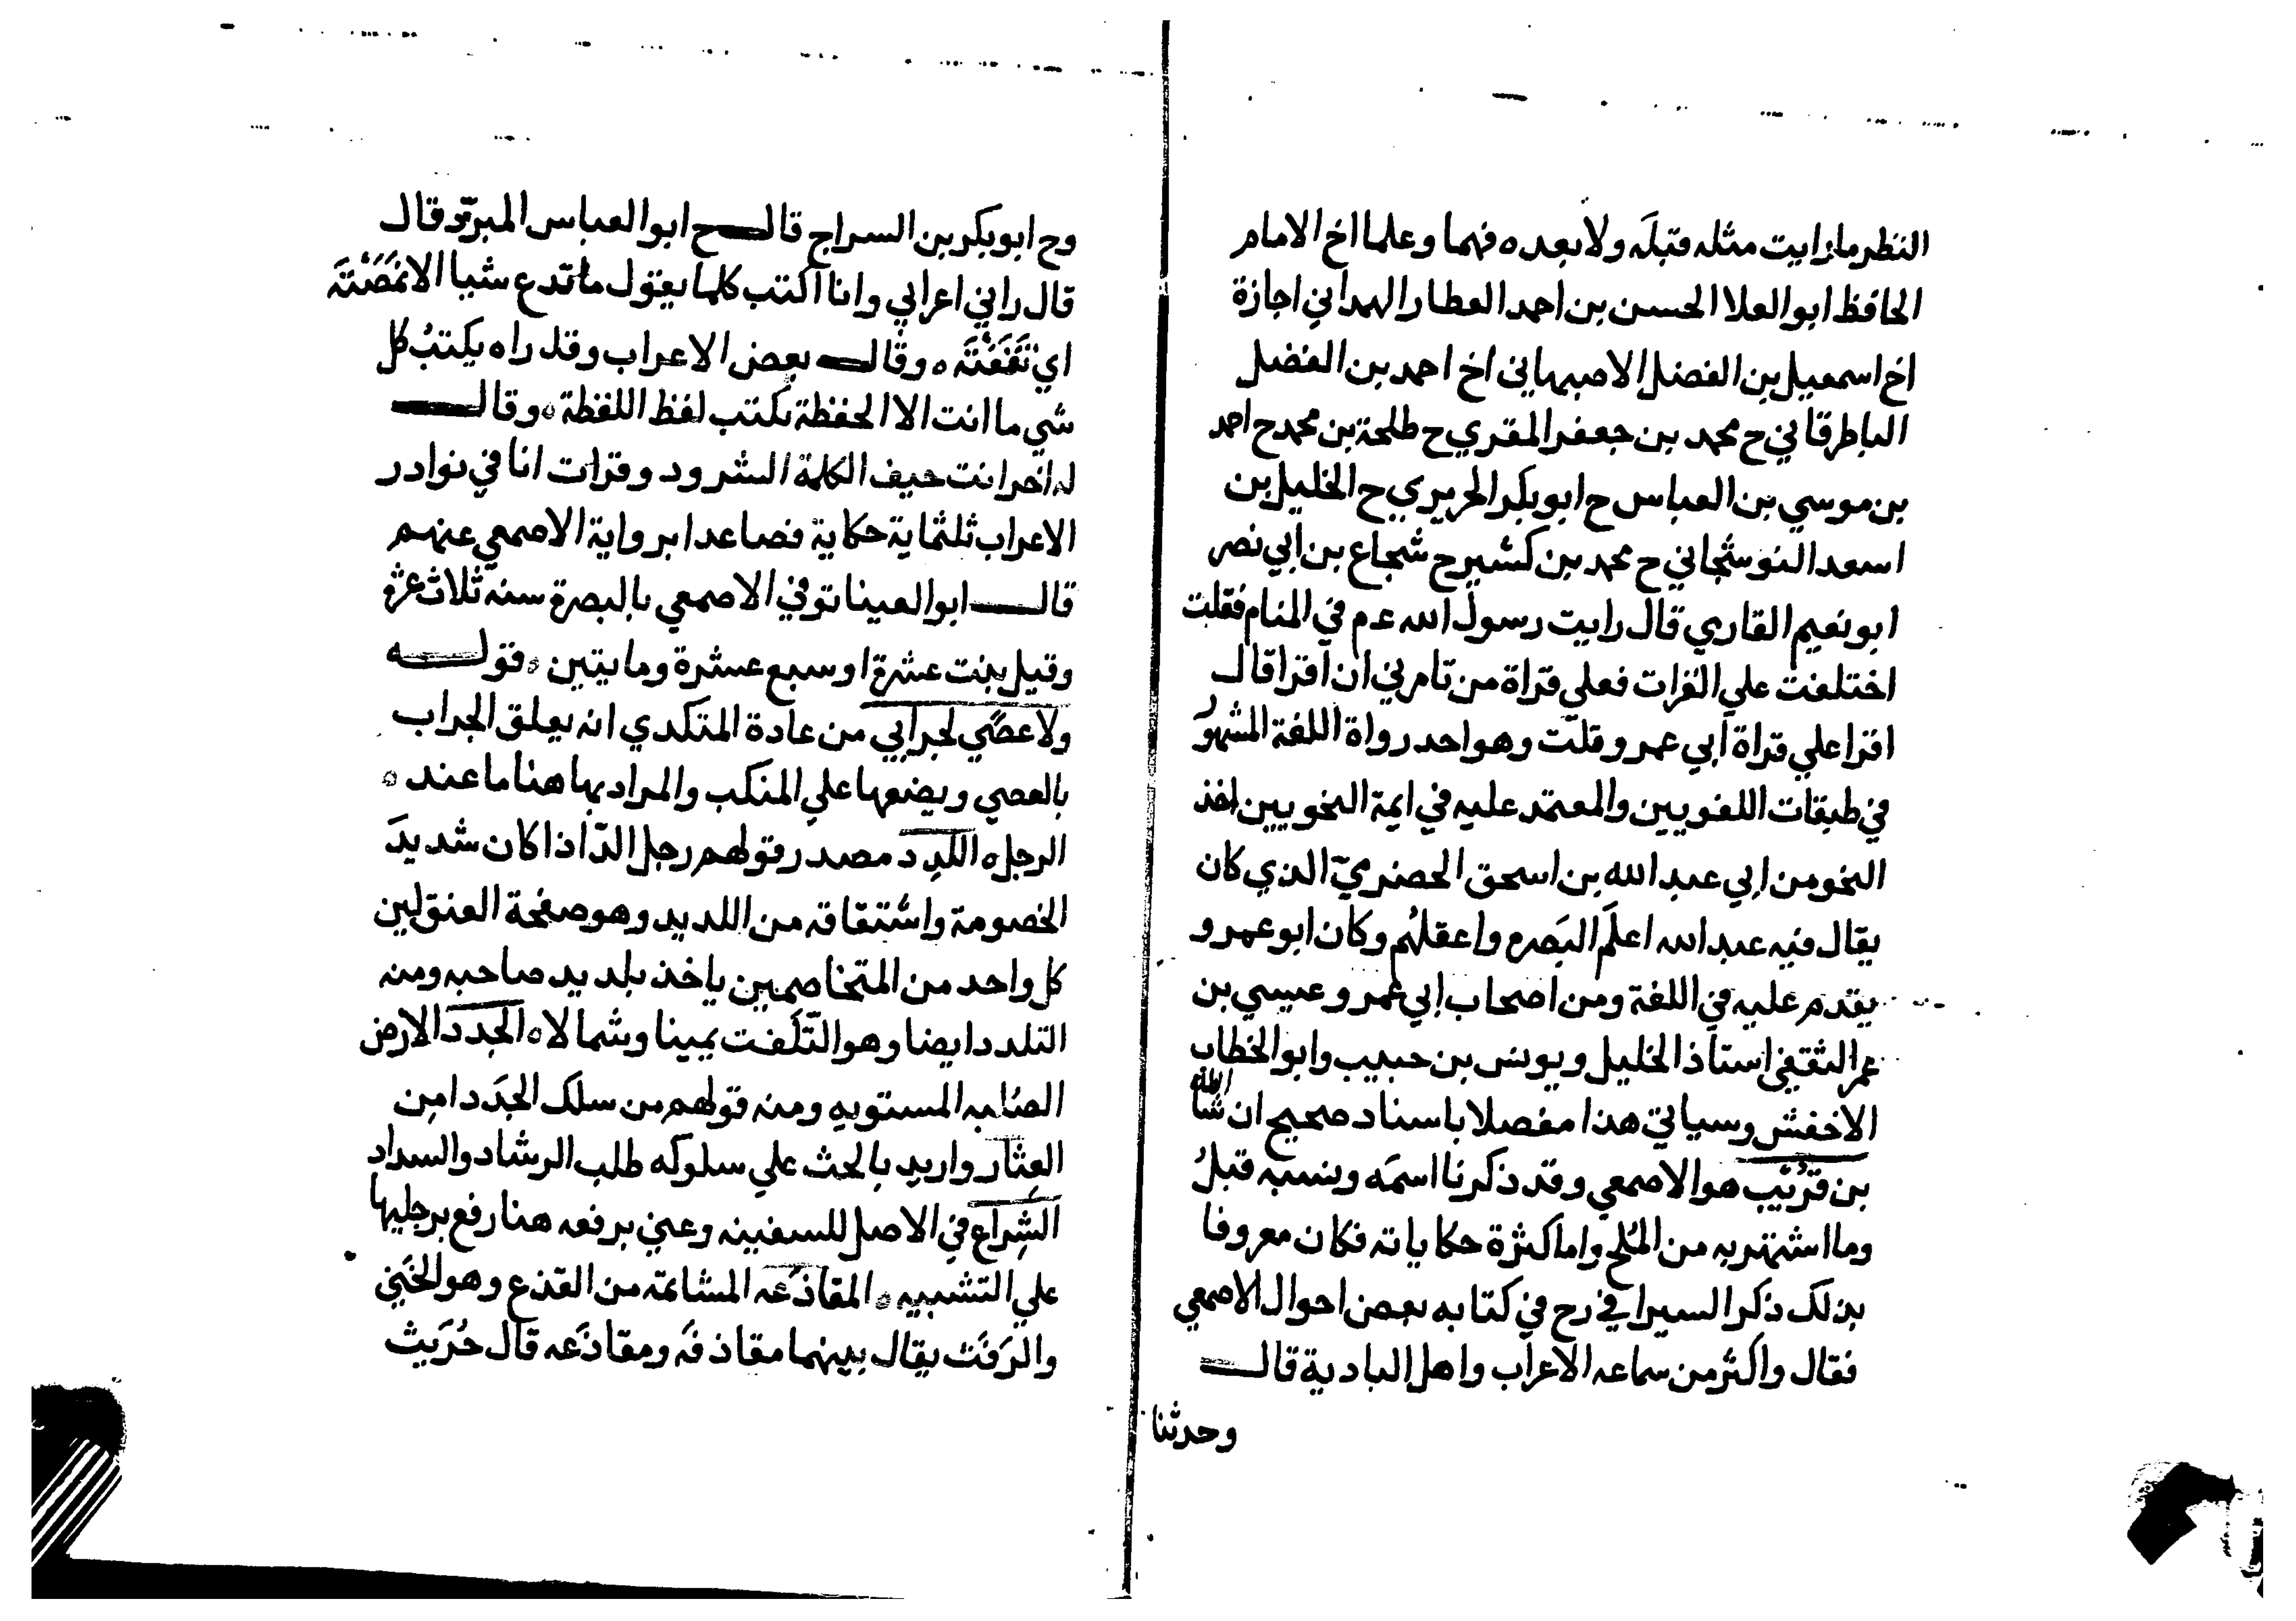 النظر ما رايت مثله قبلَه ولا بعده فهما وعلما اخ الامام
الحافظ ابو العلا الحسن بن احمد العطار الهمداني اجازة
اخ اسمعيل بن الفضل الاصبهاني اخ احمد بن الفضل
الباطرقاني ح محمد بن جعفر المقري ح طلحة بن محمد ح احمد
بن موسي بن العباس ح ابو بكر الحريري ح الخليل بن
اسعد النوشجاني ح محمد بن كشير ح شجاع بن ابي نصر
ابو نعيم القاري قال رايت رسول الله عم في المنام فقلت
اختلفت علي القرات فعلي قراة من تامرني ان اقرا قال
اقرا علي قراة ابي عمرو قلت وهو احد رواة اللغة المشهور
في طبقات اللغويين والمعتمد عليه في ايمة النحويين اخذ
النحو من ابي عبد الله بن اسحق الحضرميّ الذي كان
يقال فيه عبد الله اعلَم البَصره واعقلُهم وكان ابو عمرو
يقدم عليه في اللغة ومن اصحاب ابي عمرو عيسي بن
عمر الثقفي استاذ الخليل ويونس بن حبيب وابو الخطاب
الاخفش وسياتي هذا مفصلا باسناد صحيح ان شا الله
بن قُرَيْب هو الاصمعي وقد ذكرنا اسمَه ونسبه قبلُ
وما اشتهر به من المُلح واما كثرة حكاياته فكان معروفا
بذلك ذكر السيرافي رح في كتابه بعض احوال الاصمعي
فقال واكثر من سماعه الاعراب واهل البادية قال
وحدثنا
وح ابو بكر بن السراج قال ح ابو العباس المبرّد وقال
قال راني اعرابي وانا اكتب كلما يقول ما تدع شيا الا نمَصْتَه
اي نَتَفْتَه ٥ وقال بعض الاعراب وقد راه يكتبُ كل
شي ما انت الا الحفظة تكتب لفظ اللفظة ٥ وقال
له اخر انت حيف الكلمة الشرود وقرات انا في نوادر
الاعراب ثلثماية حكاية فصاعدا برواية الاصمعي عنهم
قال ابو العينا توفي الاصمعي بالبصرة سنه ثلاث عشرة
وقيل ست عشرة او سبع عشرة ومايتين ٥ قوله
ولا عصِّي لجرابي من عادة المتكدي انه يعلق الجراب
بالعصي ويضعها علي المنكب والمراد بها هنا ما عند ٥
الرجل ٥ اللدد مصدر قولهم رجل الدّ اذا كان شديدَ
الخصومة واشتقاقه من اللديد وهو صفحة العنق لين
كل واحد من المتخاصمين ياخذ بلديد صاحبه ومنه
التلدد ايضا وهو التّلفت يمينا وشمالا ٥ الجَدد الارض
الصُلبه المستويه ومنه قولهم من سلك الجَدَد امِن
العِثار واريد بالحث علي سلوكه طلب الرشاد والسداد
الشِراع في الاصل للسفينه وعني برفعه هنا رفع برجليها
علي التشبيه ٥ المقاذعه المشاتمة من القذع وهو الخَنِي
والرَفَث يقال بينهما مقاذفَه ومقاذَعه قال حُرَيث